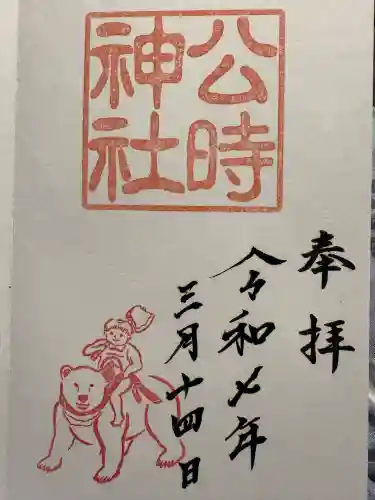 公時
神社
奉拝
令和七年
三月十四日